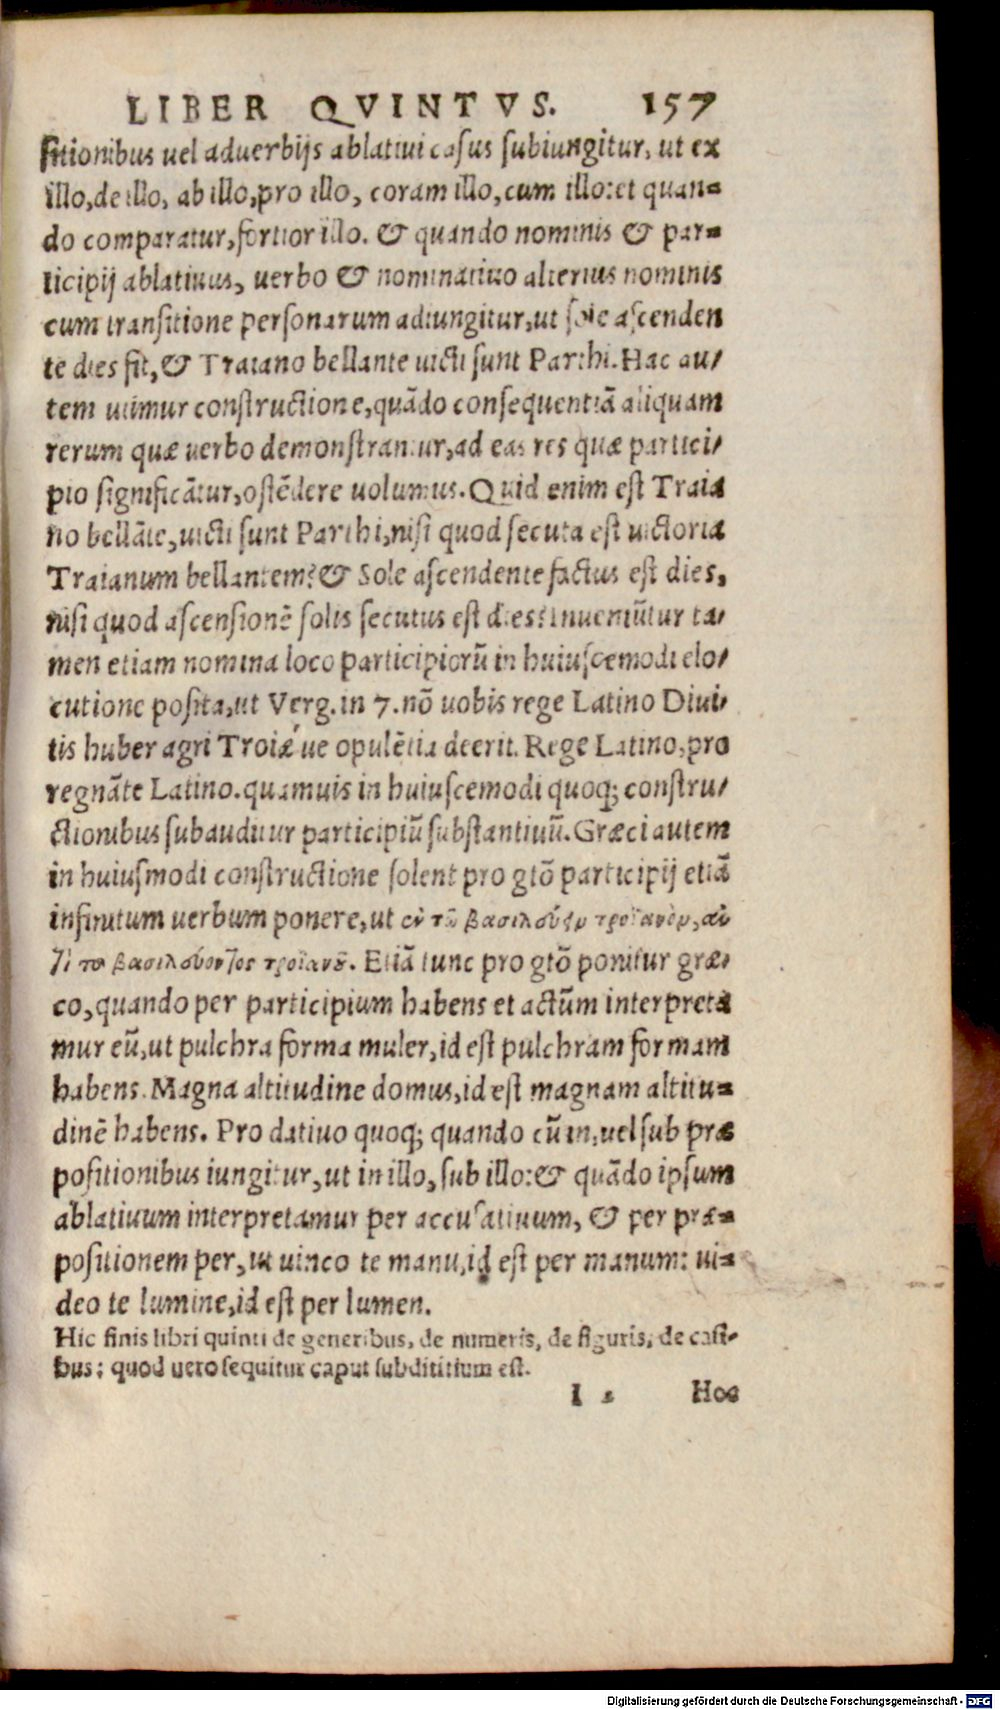 LIBER QVINTVS. 157
sitionibus uel aduerbijs ablatiui casus subiungitur, ut ex
illo, de illo, ab illo, pro illo, coram illo, cum illo: et quan=
do comparatur, fortior illo. & quando nominis & par=
ticipij ablatiuus, uerbo & nominatiuo alterius nominis
cum transitione personarum adiungitur, ut sole ascenden
te dies fit, & Traiano bellante uicti sunt Parthi. Hac au/
tem utimur constructione, quãdo consequentiã aliquam
rerum quæ uerbo demonstrantur, ad eas res quæ partici/
pio significãtur, ostẽdere uolumus. Quid enim est Traia
no bellãte, uicti sunt Parthi, nisi quod secuta est uictoria
Traianum bellantem? & Sole ascendente factus est dies,
nisi quod ascensionẽ solis secutus est dies? Inueniũtur ta/
men etiam nomina loco participiorũ in huiuscemodi elo/
cutione posita, ut Verg. in 7. nõ uobis rege Latino Diui/
tis huber agri Troiæ´ue opulẽtia deerit. Rege Latino, pro
regnãte Latino. quamuis in huiuscemodi quoq; constru/
ctionibus subauditur participiũ substantiuũ. Græci autem
in huiusmodi constructione solent pro gtõ participij etiã
infinitum uerbum ponere, ut ἐν τῷ βασιλεύειν τροϊανὸν, ἀν
τὶ τοῦ βασιλεύοντος τροϊανοῦ. Etiã tunc pro gtõ ponitur græ/
co, quando per participium habens et actũm interpreta
mur eũ, ut pulchra forma muler, id est pulchram formam
habens. Magna altitudine domus, id est magnam altitu=
dinẽ habens. Pro datiuo quoq; quando cũ in, uel sub præ
positionibus iungitur, ut in illo, sub illo: & quãdo ipsum
ablatiuum interpretamur per accusatiuum, & per præ=
positionem per, ut uinco te manu, id est per manum: ui=
deo te lumine, id est per lumen.
Hic finis libri quinti de generibus, de numeris, de figuris, de casi-
bus: quod uero sequitur caput subdititium est.
I Hoc
Digitalisierung gefördert durch die Deutsche Forschungsgemeinschaft - DFG